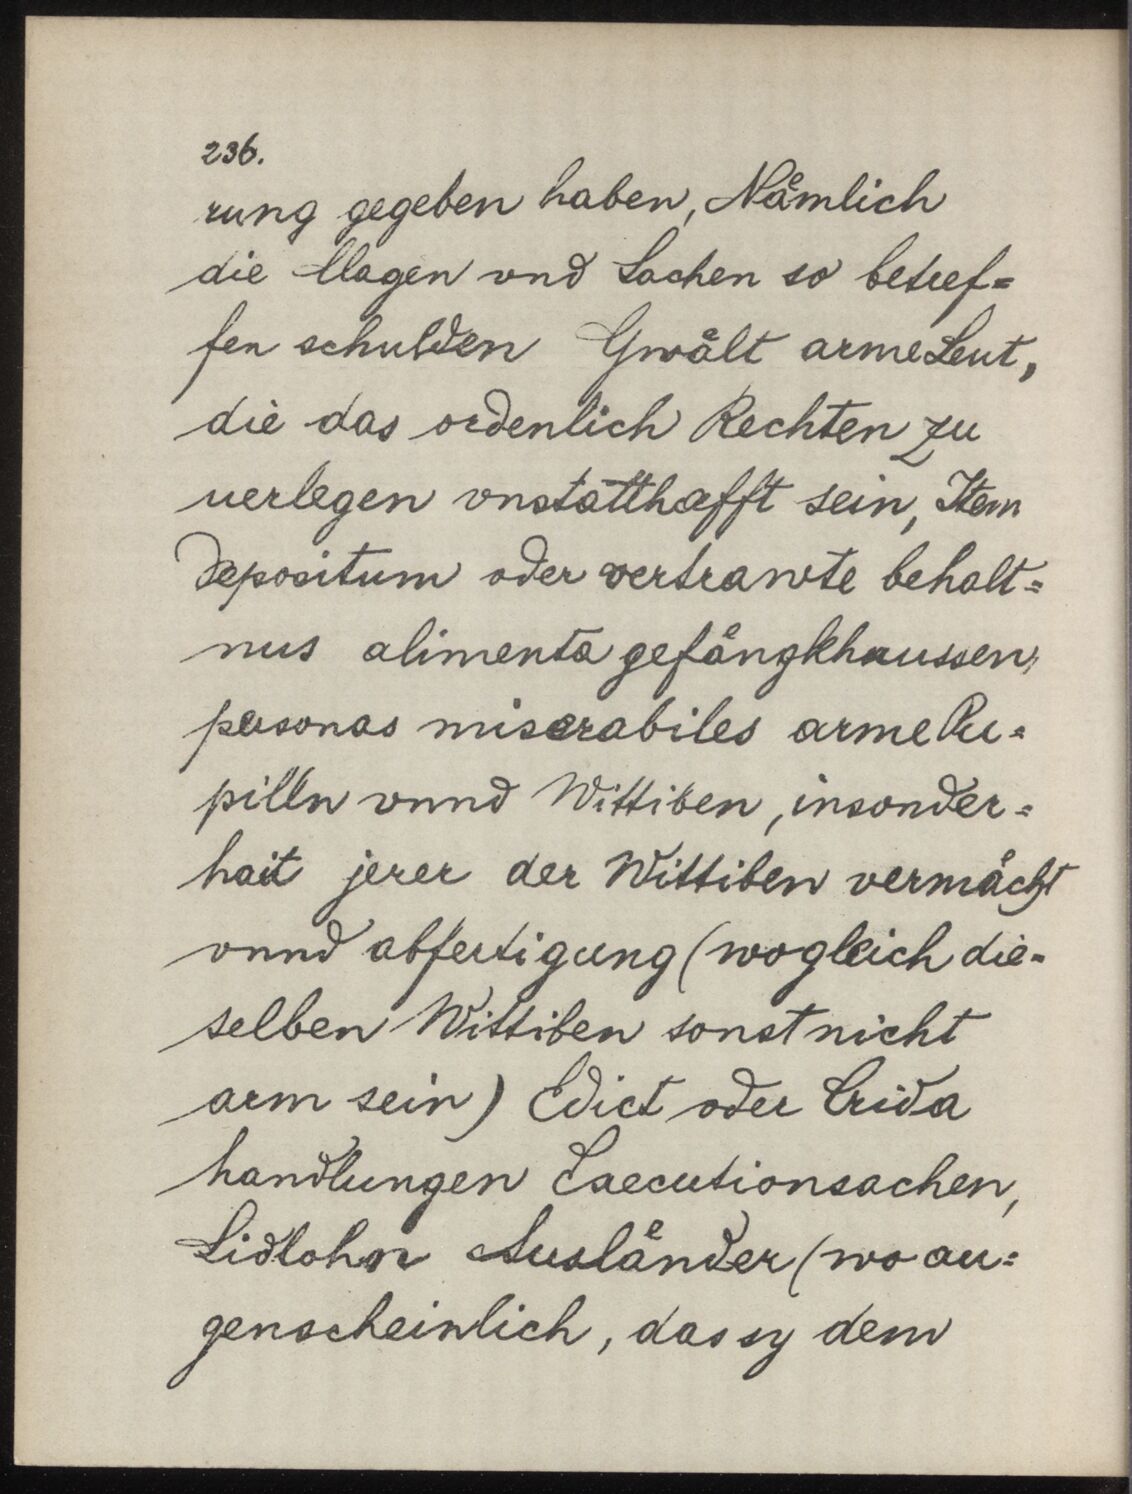 236.
rung gegeben haben, Nåmlich
die Clagen vnd Sachen so betref=
fen schulden Gwålt arme Leut,
die das ordenlich Rechten zu
uerlegen vnstatthafft sein, Item
Depositum oder vertrawte behalt=
nus alimenta gefångkhaussen,
personas miserabiles arme Pu=
pilln vnnd Wittiben, insonder=
hait jerer der Wittiben vermåcht
vnnd abfertigung (wo gleich die=
selben Wittiben sonst nicht
arm sein) Edict oder Crida
handlungen Executionsachen,
Lidlohn Auslånder (wo au=
genscheinlich, das sy dem